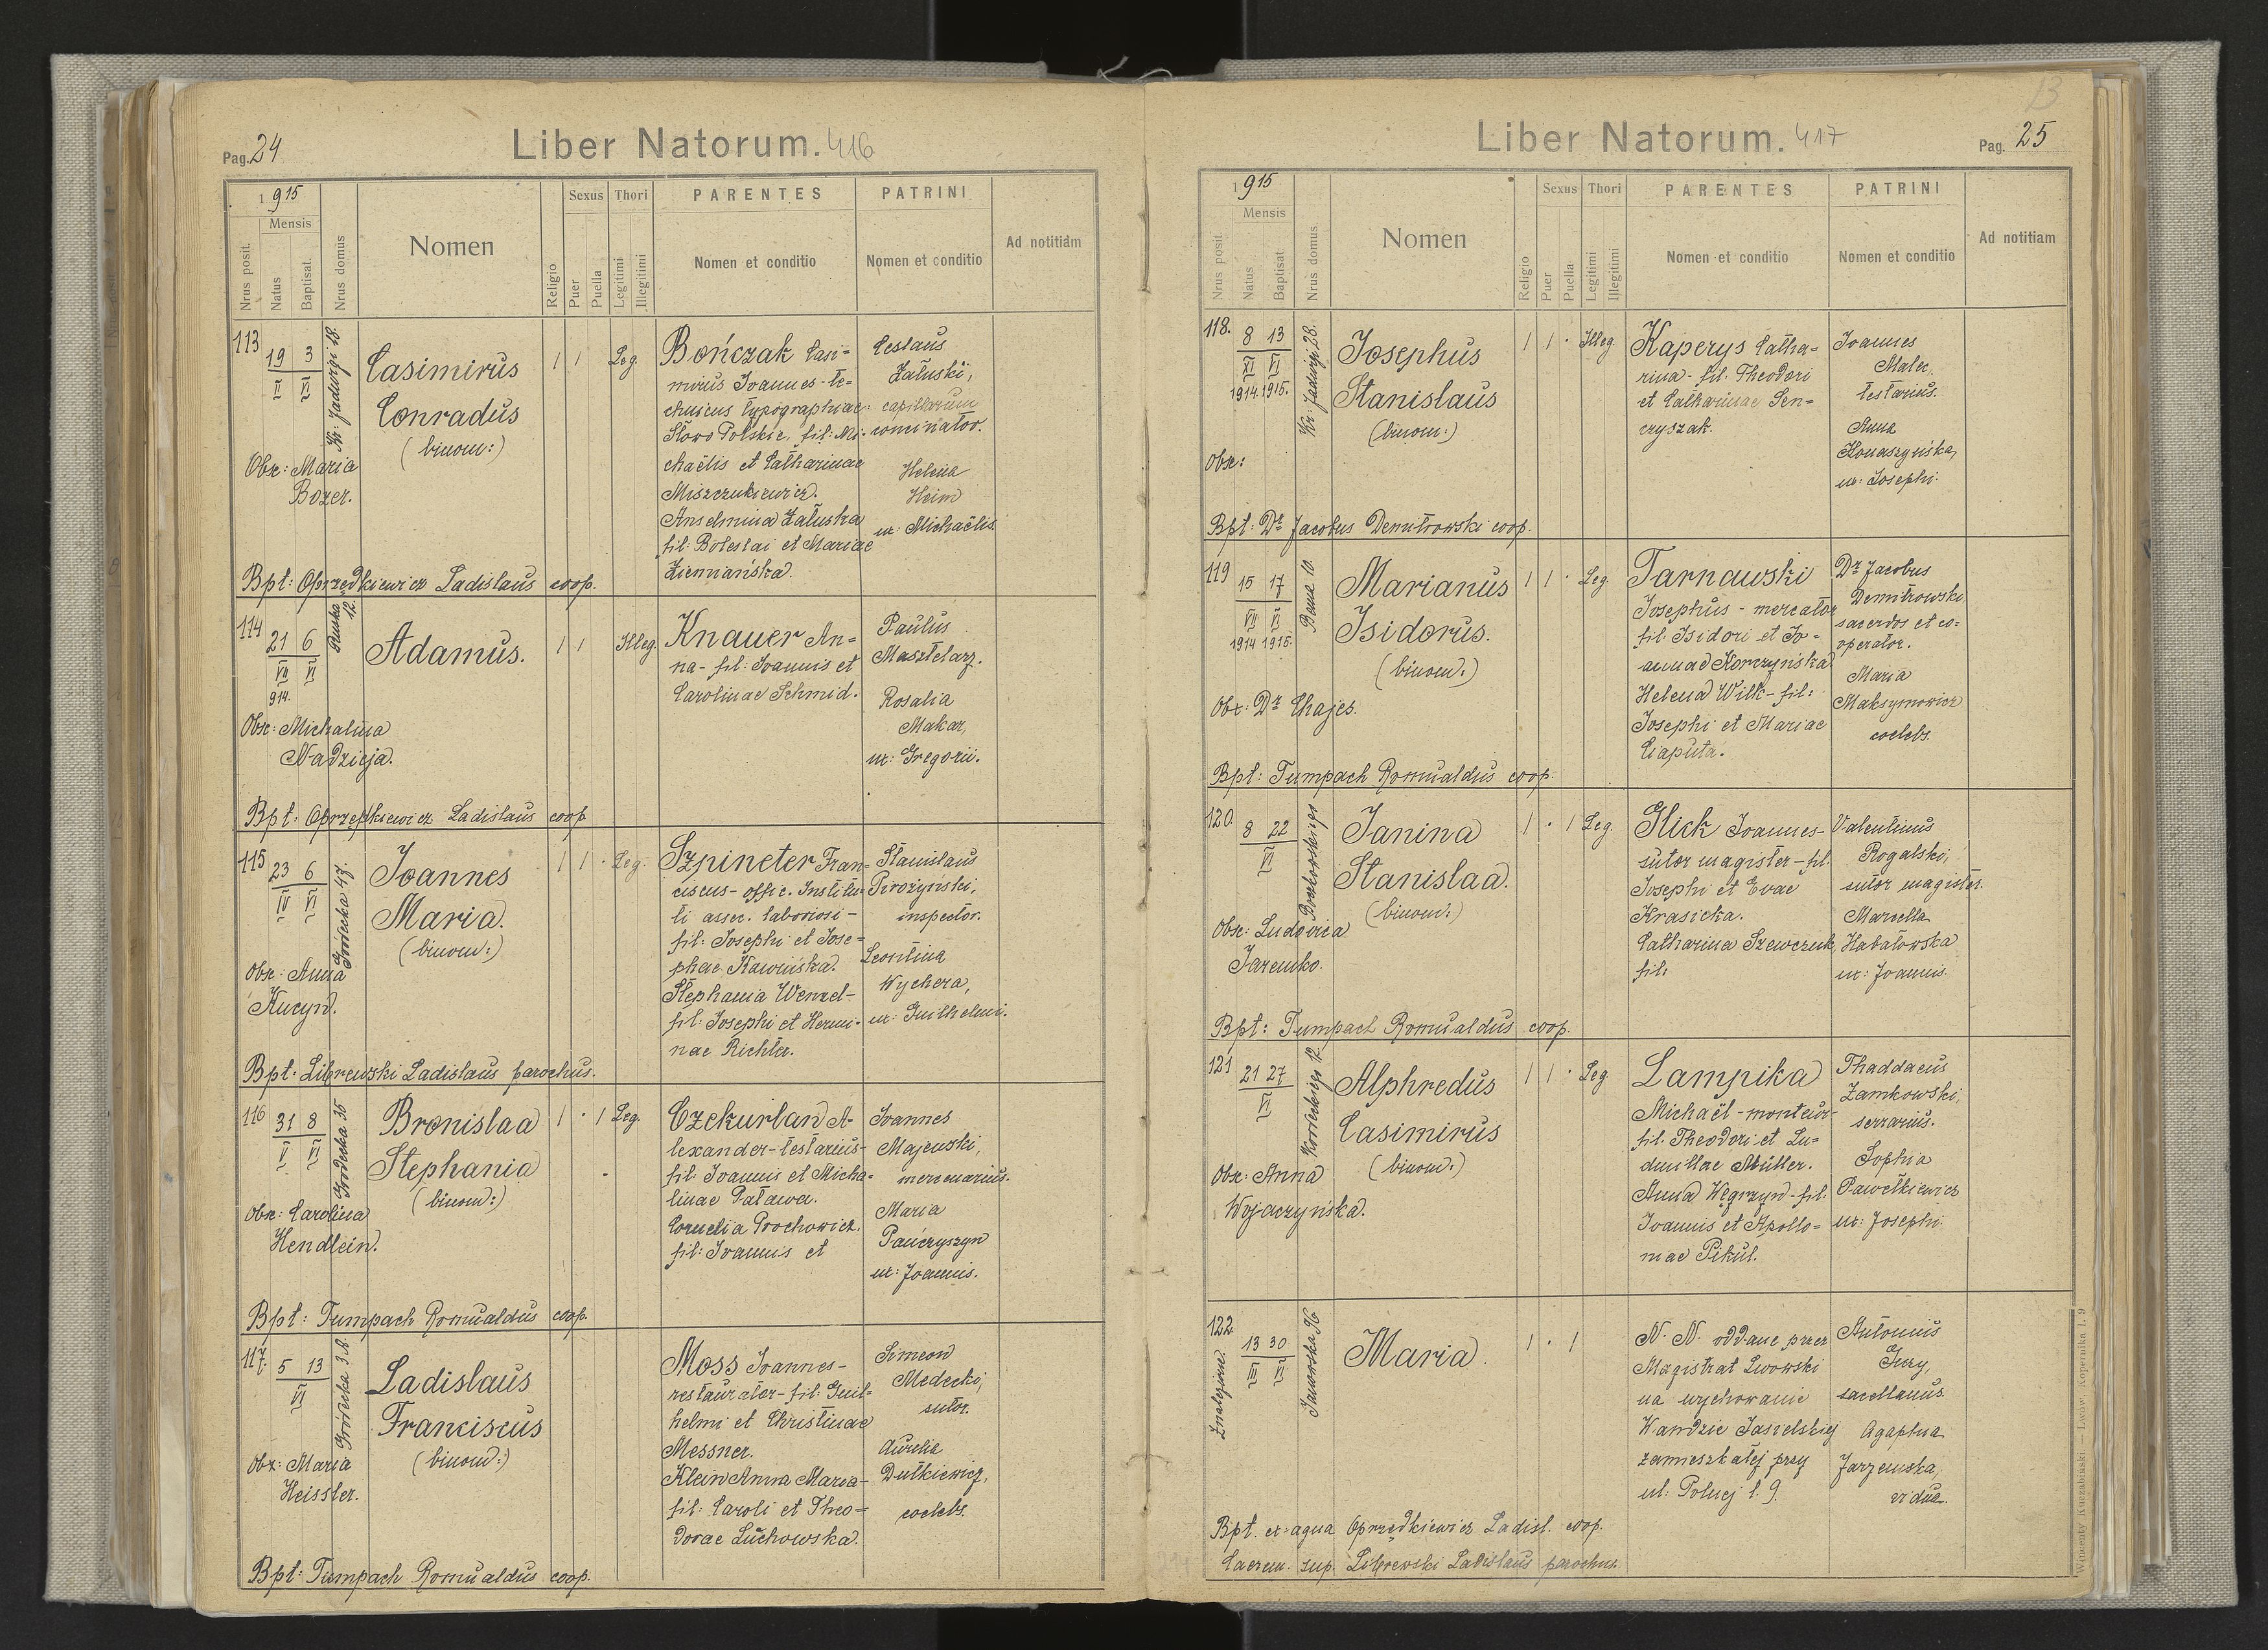 Pag. 24
Liber Natorum. 416
1915
Mensis
Nrus posit.
Natus
Baptisat.
Nrus domus
Nomen
Religio
Sexus
Puer
Puella
Thori
Legitimi
Illegitimi
PARENTES
Nomen et conditio
PATRINI
Nomen et conditio
Ad notitiam
113
19 3
V VI
Kr: Jadwigi 18.
Casimirus
Conradus
(binom:)
1 1
Leg.
Bończak Casi=
mirus Joannes-te=
chnicus typographiae
Słowo Polskie, fil: Mi-
chaëlis et Catharinae
Miszczukiewicz.
Anselmina Załuska
fil: Boleslai et Mariae
Ziemiańska.
Ceslaus
Załuski,
capillorum
concinator.
Helena
Heim
ux: Michaëlis
Obx: Maria
Bozer.
Bpt: Oprzędkiewicz Ladislaus coop.
114
21 6
VII VI
914.
Ruska 12.
Adamus.
1 1
Illeg.
Knauer An=
na- fil: Joannis et
Carolinae Schmid.
Paulus
Masztelarz.
Rosalia
Makar,
ux: Gregorii.
Obx: Michalina
Nadzieja.
Bpt: Oprzędkiewicz Ladislaus coop
115
23 6
IV VI
Gródecka 47.
Joannes
Maria.
(binom:)
1 1 ·
Leg.
Szpineter Fran=
ciscus- offic. Institu=
ti assec. laboriosi-
fil: Josephi et Jose=
phae Kawińska.
Stephania Wenzel-
fil: Josephi et Hermi-
nae Richter.
Stanislaus
Pirożyński,
inspector.
Leontina
Wychera,
ux: Guilhelmi.
Obx: Anna
Kucyn.
Bpt: Librewski Ladislaus parochus.
116
31 8
V VI
Grodecka 35
Bronislaa
Stephania
(binom:)
1 · 1
Leg.
Czekurlan A-
lexander-testarius-
fil: Joannis et Micha=
linae Paława.
Cornelia Prochowicz.
fil: Joannis et
Joannes
Majewski,
mercenarius.
Maria
Pańczyszyn
ux: Joannis.
Obx: Carolina
Hendlein.
Bpt: Tumpach Romualdus coop.
117.
5 13
VI
Gródecka 3 A.
Ladislaus
Franciscus
(binom:)
Moss Joannes-
restaurator-fil: Guil=
helmi et Christinae
Messner.
Klein Anna Maria-
fil: Caroli et Theo=
dorae Luchowska.
Simeon
Medecki,
sutor.
Aurelia
Dutkiewicz,
coelebs.
Obx: Maria
Heissler.
Bpt: Tumpach Romualdus coop.
13
Liber Natorum. 417
Pag. 25
1915
Mensis
Nrus posit.
Natus
Baptisat.
Nrus domus.
Nomen
Religio
Sexus
Puer
Puella
Thori
Legitimi
Illegitimi
PARENTES
Nomen et conditio
PATRINI
Nomen et conditio
Ad notitiam
118.
8 13
XI VI
1914. 1915.
Kr: Jadwigi 28.
Josephus
Stanislaus
(binom:)
1 1 ·
Illeg.
Kaperys Catha=
rina- fil: Theodori
et Catharinae Sen=
czyszak.
Joannes
Malec,
testarius.
Anna
Konaszyńska,
ux: Josephi.
Obx:
Bpt: Dr Jacobus Demitrowski coop.
119
15 17
VII VI
1914 1915.
Bema 10.
Marianus
Isidorus.
(binom:)
1 1 ·
Leg
Tarnawski
Josephus - mercator
fil. Isidori et Jo=
annae Korczyńska.
Helena Wilk- fil:
Josephi et Mariae
Caputa.
Dr Jacobus
Demitrowski
sacerdos et co=
operator.
Maria
Maksymowicz
coelebs.
Obx: Dr Chajes.
Bpt: Tumpach Romualdus coop.
120.
8 22
VI
Janina
Stanislaa.
(binom:)
1 · 1
Leg.
Glick Joannes-
sutor magister-fil.
Josephi et Evae
Krasicka.
Catharina Szewczuk,
fil:
Valentinus
Rogalski,
sutor magister.
Marcella
Habatowska
ux: Joannis.
Obx: Ludovica
Jaremko.
Bpt: Tumpach Romualdus coop.
121
21 27
VI
Alphredus
Casimirus
(binom:)
1 1 ·
Leg
Lampika
Michaël-monteur-
fil. Theodori et Lu=
dmillae Müller.
Anna Węgrzyn-fil:
Joannis et Apollo=
niae Pikul.
Thaddaeus
Zamkowski,
serrarius.
Sophia
Pawełkiewicz
ux: Josephi.
Obx: Anna
Wojaczyńska.
122.
13 30
III VI
Znaleziona.
Janowska 96
Maria.
1 · 1
N. N. oddane przez
Magistrat Lwowski
na wychowanie
Wandzie Jasielskiej
zamieszkałej przy
ul: Polnej l. 9.
Antonius
Jury,
sacellanus.
Agaphia
Jarzemska,
vidua.
Bpt. ex aqua Oprzędkiewicz Ladisl. coop.
Caerem. sup. Librewski Ladislaus parochus.
Wincenty Kuczabiński Lwów, Kopernika l. 9